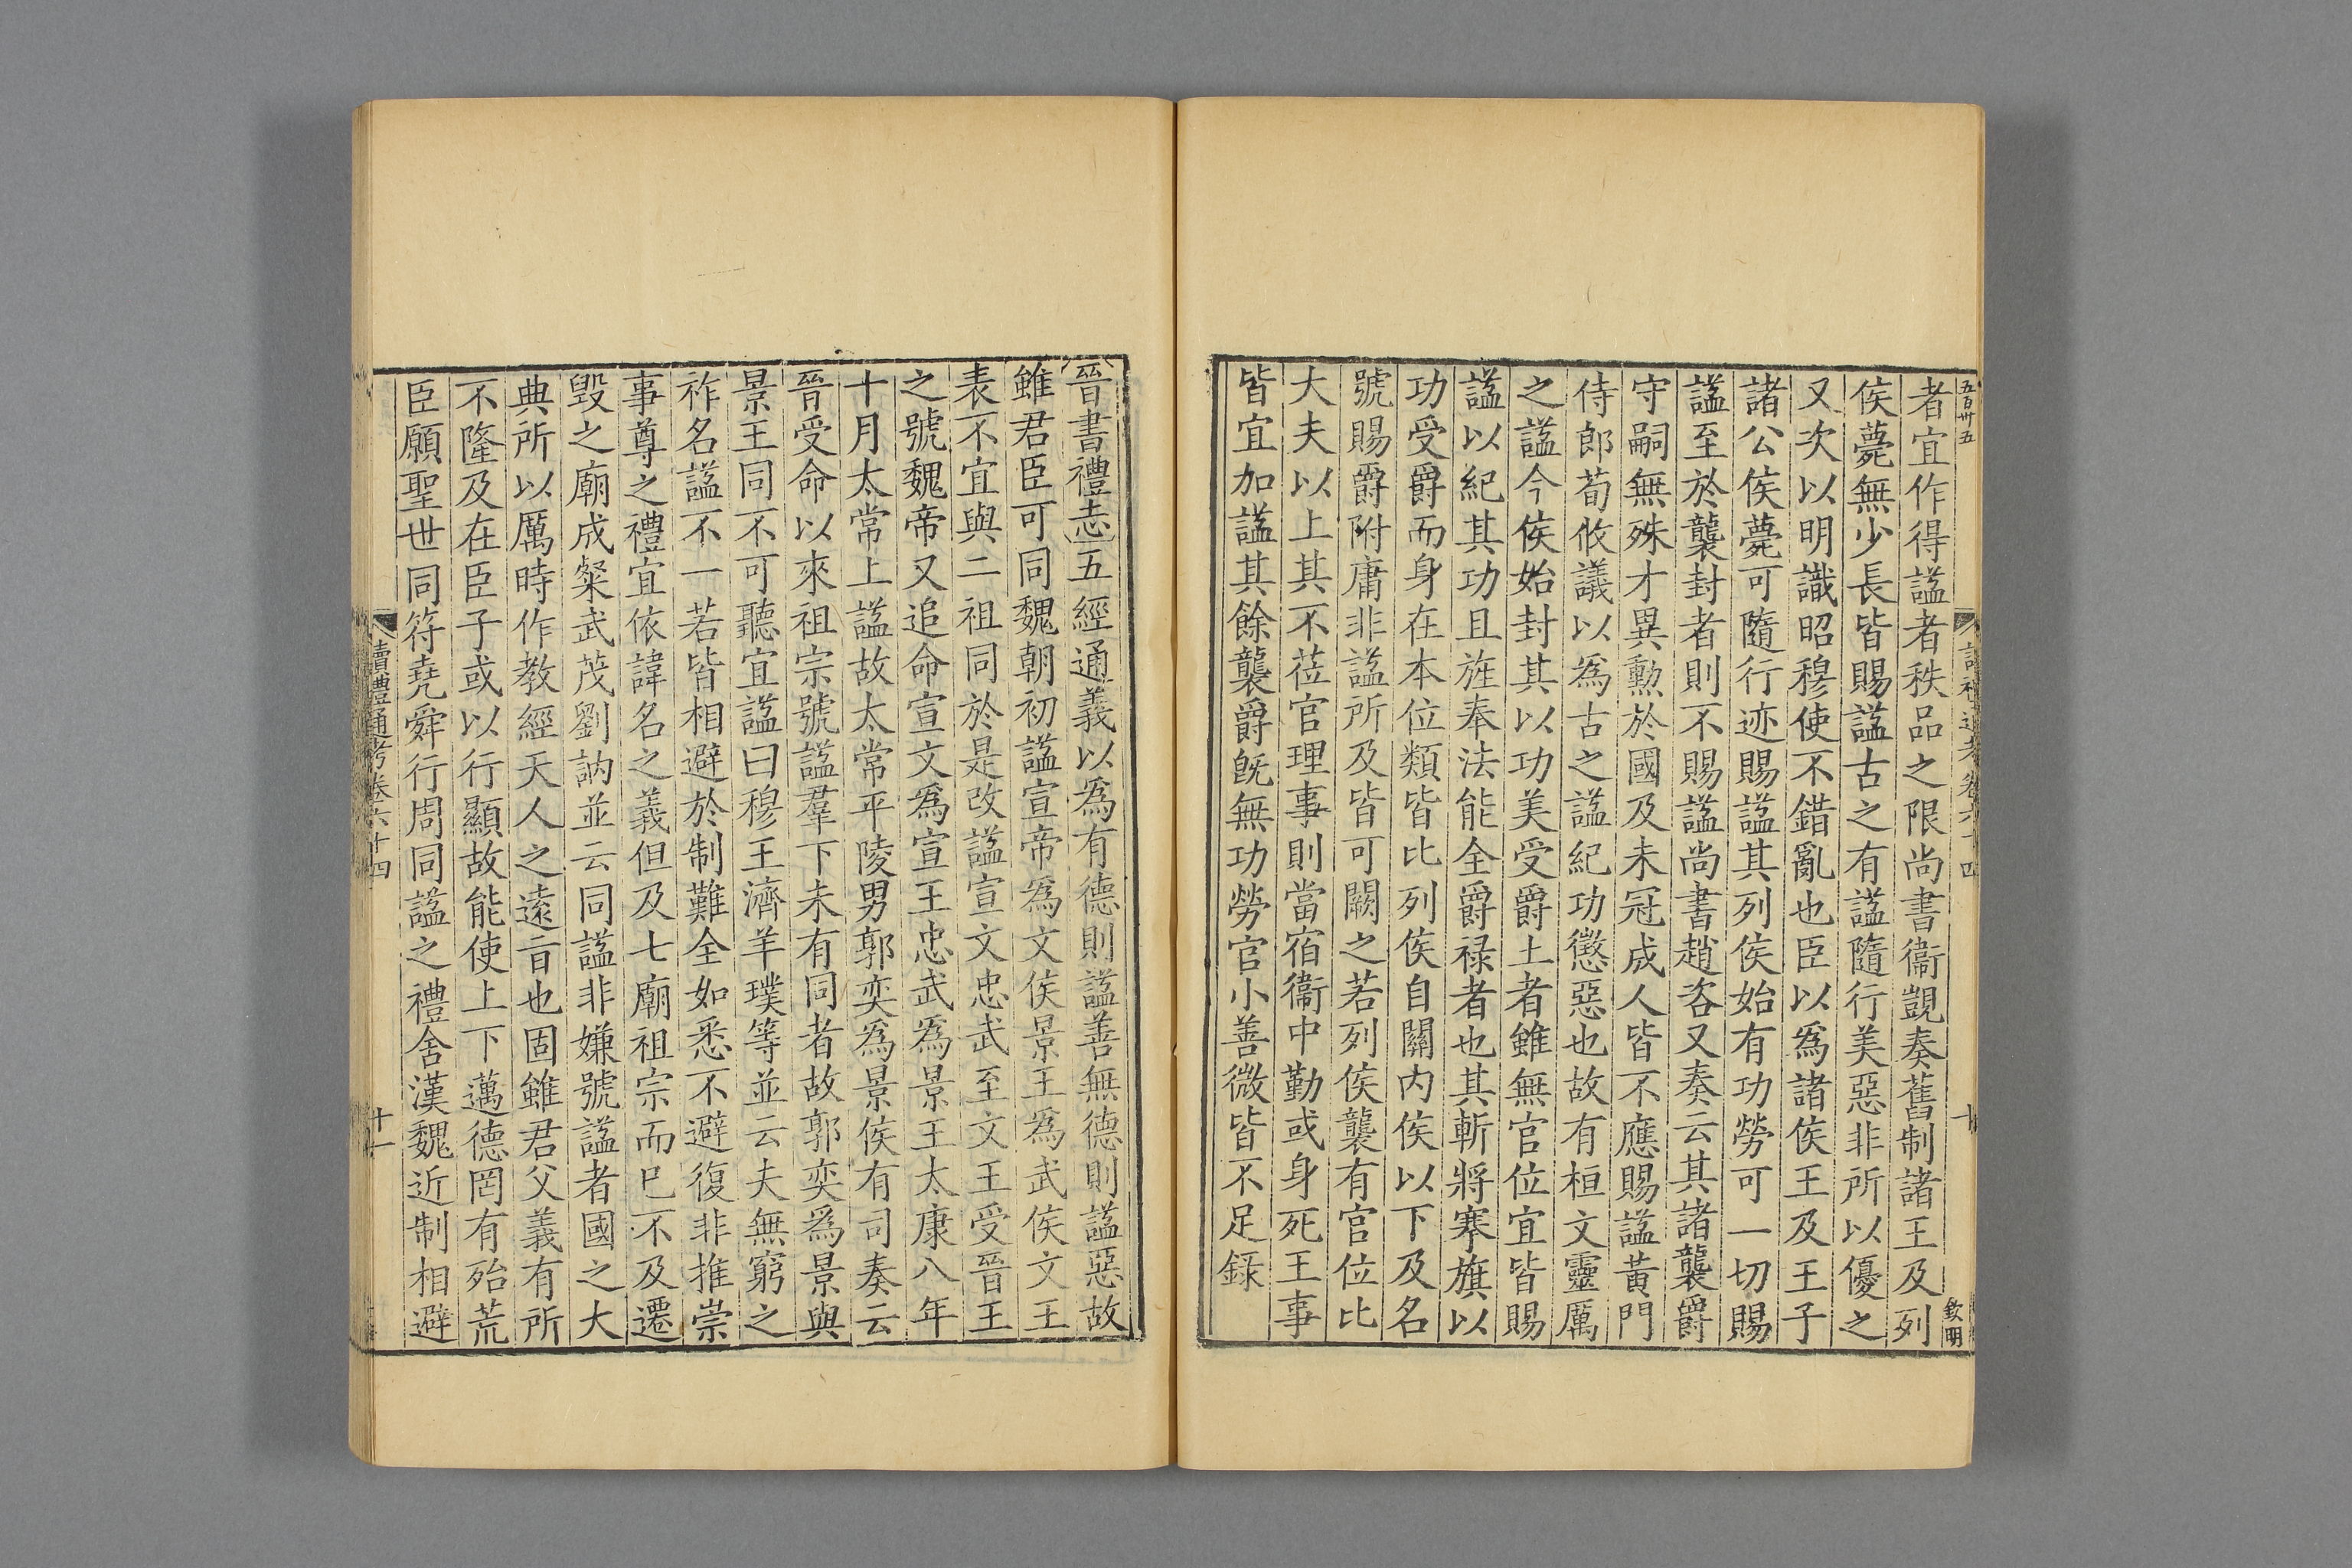 五百卅五
讀禮通考卷六十四
十
欽明
者宜作得諡者秩品之限尚書衞覬奏舊制諸王及列
侯薨無少長皆賜諡古之有諡隨行美惡非所以優之
又次以明識昭穆使不錯亂也臣以爲諸侯王及王子
諸公侯薨可隨行迹賜諡其列侯始有功勞可一切賜
諡至於襲封者則不賜諡尚書趙咨又奏云其諸襲爵
守嗣無殊才異勲於國及未冠成人皆不應賜諡黃門
侍郎荀攸議以爲古之諡紀功懲惡也故有桓文靈厲
之諡今侯始封其以功美受爵土者雖無官位宜皆賜
諡以紀其功且旌奉法能全爵禄者也其斬將搴旗以
功受爵而身在本位類皆比列侯自關内侯以下及名
號賜爵附庸非諡所及皆可闕之若列侯襲有官位比
大夫以上其不莅官理事則當宿衞中勤或身死王事
皆宜加諡其餘襲爵旣無功勞官小善微皆不足錄
晉書禮志五經通義以爲有德則諡善無德則諡惡故
雖君臣可同魏朝初諡宣帝爲文侯景王爲武侯文王
表不宜與二祖同於是改諡宣文忠武至文王受晉王
之號魏帝又追命宣文爲宣王忠武爲景王太康八年
十月太常上諡故太常平陵男郭奕爲景侯有司奏云
晉受命以來祖宗號諡羣下未有同者故郭奕爲景與
景王同不可聽宜諡曰穆王濟羊璞等並云夫無窮之
祚名諡不一若皆相避於制難全如悉不避復非推崇
事尊之禮宜依諱名之義但及七廟祖宗而已不及遷
毀之廟成粲武茂劉訥並云同諡非嫌號諡者國之大
典所以厲時作教經天人之遠旨也固雖君父義有所
不隆及在臣子或以行顯故能使上下邁德罔有殆荒
臣願聖世同符堯舜行周同諡之禮舍漢魏近制相避
讀禮通考卷六十四
十一